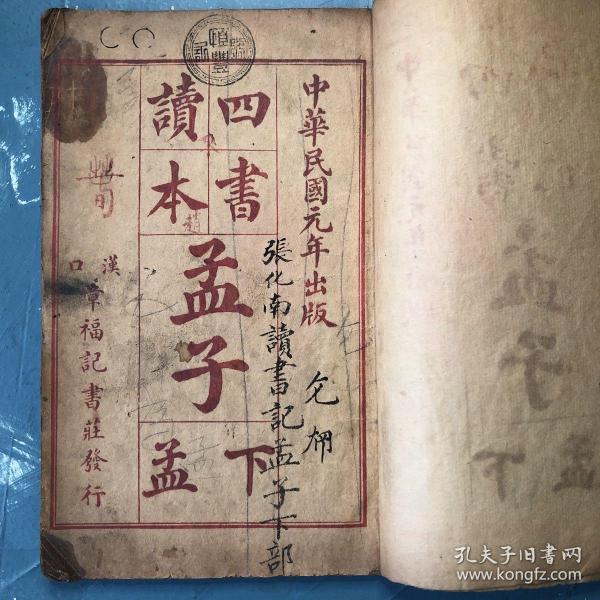 中華民國元年出版
張化南讀書記孟子下部
四書
讀本
孟子
下孟
漢口
章福記書莊發行
孔夫子旧书网
www.kongfz.com